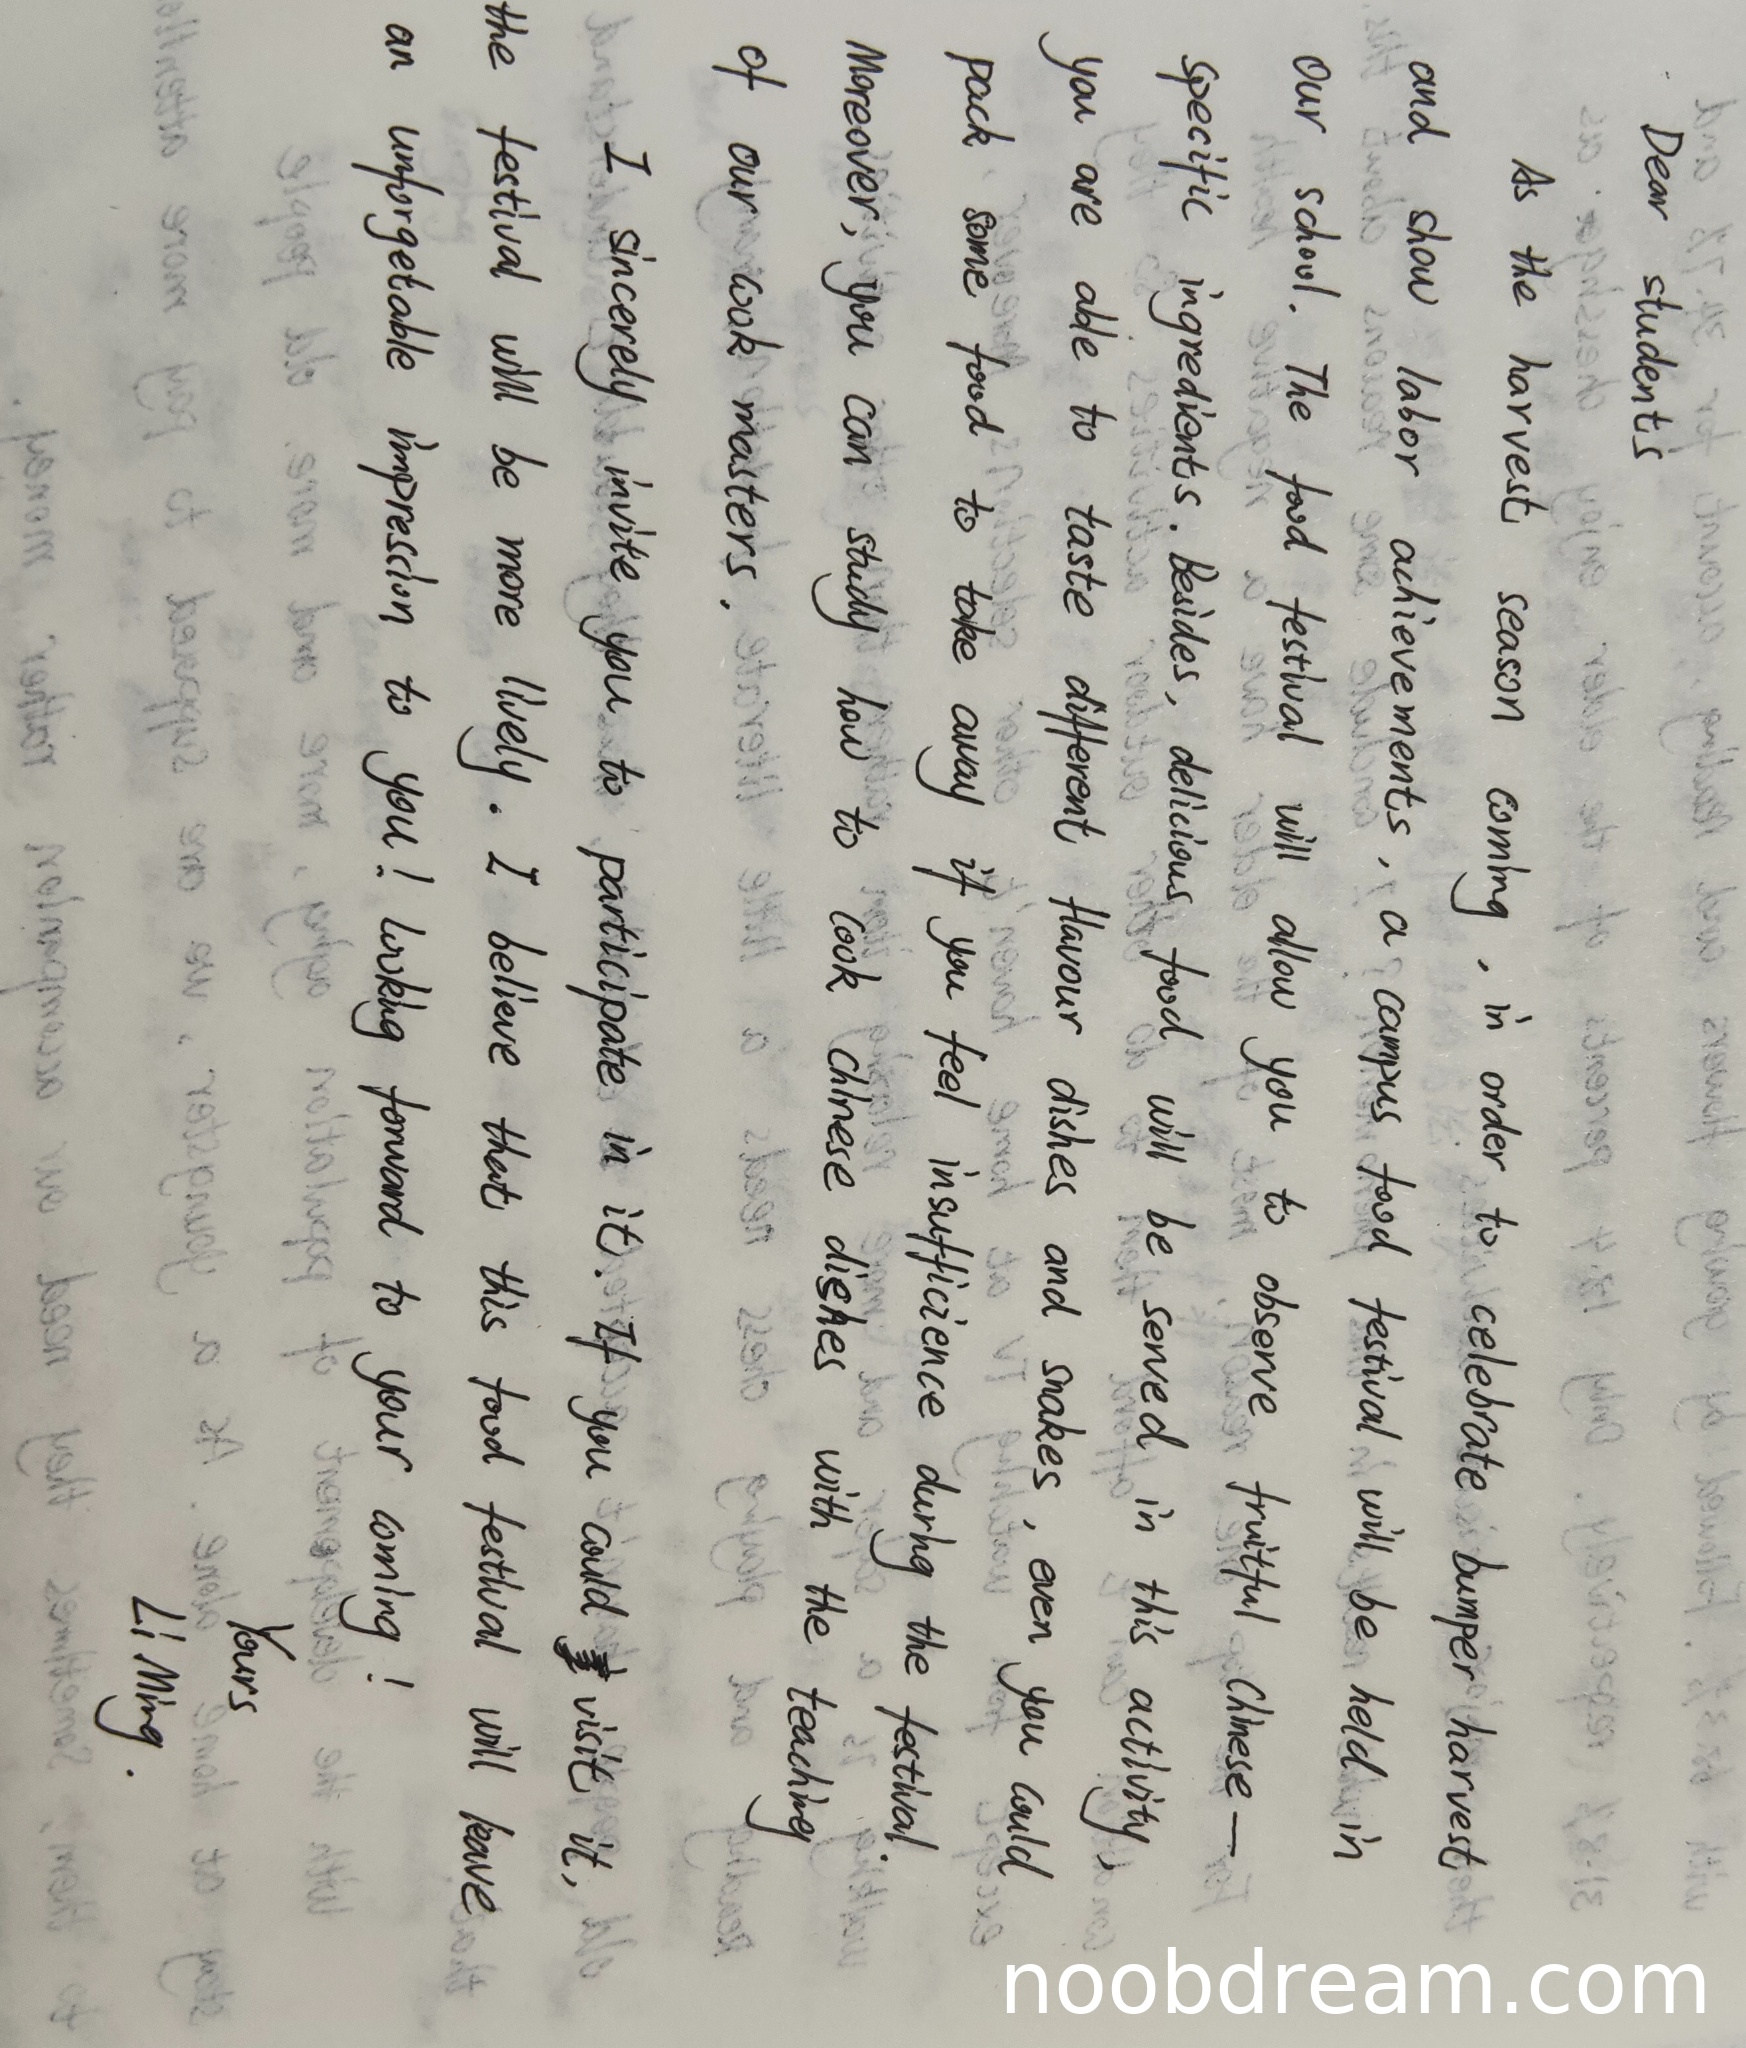 Dear students
As the harvest season coming, in order to celebrate bumper harvest
and show labor achievements, a campus food festival will be held in
our school. The food festival will allow you to observe fruitful Chinese—
specific ingredients. Besides, delicious food will be served in this activity,
you are able to taste different flavour dishes and snakes, even you could
pack some food to take away if you feel insufficience during the festival.
Moreover, you can study how to cook chinese dishes with the teaching
of our cook masters.
I sincerely invite you to participate in it. If you could visit it,
the festival will be more lively. I believe that this food festival will leave
an unforgetable impression to you! looking forward to your coming!
Yours
Li Ming.
noobdream.com